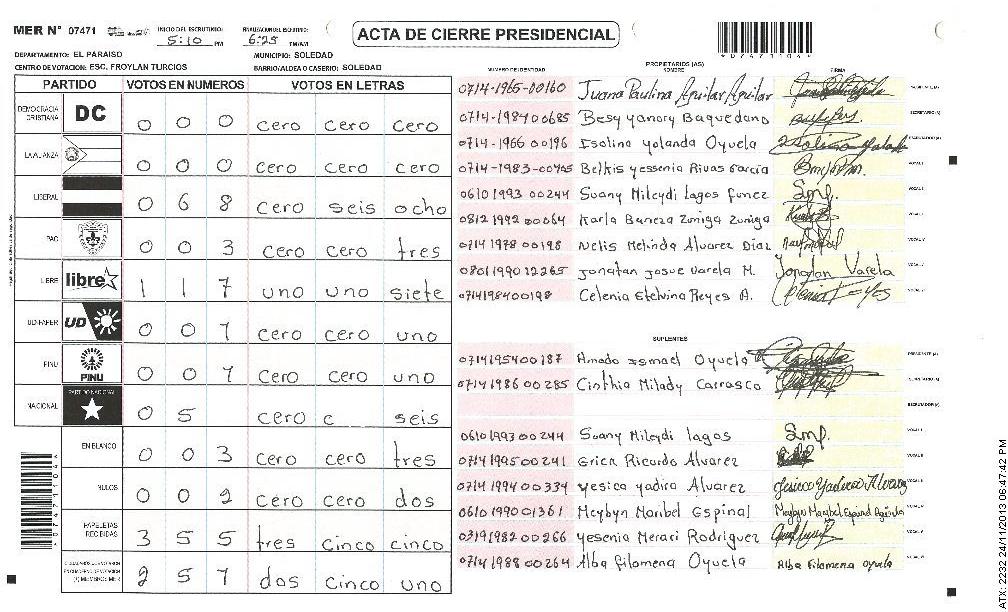 MER N° 07471 INICIO DEL ESCRUTINIO: 5:10 PM FINALIZACION DEL ESCRUTINIO: 6:25 PM/AM
ACTA DE CIERRE PRESIDENCIAL
DEPARTAMENTO: EL PARAISO MUNICIPIO: SOLEDAD
CENTRO DE VOTACION: ESC. FROYLAN TURCIOS BARRIO/ALDEA O CASERIO: SOLEDAD
PARTIDO VOTOS EN NUMEROS VOTOS EN LETRAS
DEMOCRACIA CRISTIANA DC 0 0 0 cero cero cero
LA ALIANZA 0 0 0 cero cero cero
LIBERAL 0 6 8 cero seis ocho
PAC 0 0 3 cero cero tres
LIBRE libre 1 1 7 uno uno siete
UD-FAPER UD 0 0 1 cero cero uno
PINU PINU 0 0 1 cero cero uno
NACIONAL PARTIDO NACIONAL 0 5 cero c seis
EN BLANCO 0 0 3 cero cero tres
NULOS 0 0 2 cero cero dos
PAPELETAS RECIBIDAS 3 5 5 tres cinco cinco
2 5 1 dos cinco uno
NUMERO DE IDENTIDAD PROPIETARIOS (AS) NOMBRE FIRMA
0714-1965-00160 Juana Paulina Aguilar Aguilar
0714-1984 00685 Besy yanory Baquedano
0714-1966 00196 Isolina yolanda Oyuela
0714-1983-00465 Belkis yessenia Rivas Garcia
0610 1993 00244 Suany Mileydi Lagos Funez
0812 1992 00064 Karla Baneza Zuniga Zuniga
0714 1978 00198 Nelis Melinda Alvarez Diaz
0801 1990 12265 Jonatan Josue Varela M. Jonatan Varela
0714198400198 Celenia Etelvina Reyes A.
SUPLENTES
0714195400187 Amado Ismael Oyuela
0714 1986 00285 Cinthia Milady Carrasco
0610 1993 00244 Suany Mileydi lagos
0714 1995 00241 Erick Ricardo Alvarez
0714 1994 00334 yesica yadira Alvarez
0610 1990 01361 Meybyn Maribel Espinal
0319 1982 00266 yesenia Meraci Rodriguez
0714 1988 00264 Alba Filomena Oyuela Alba Filomena oyuela
ATX: 2232 24/11/2013 06:47:42 PM